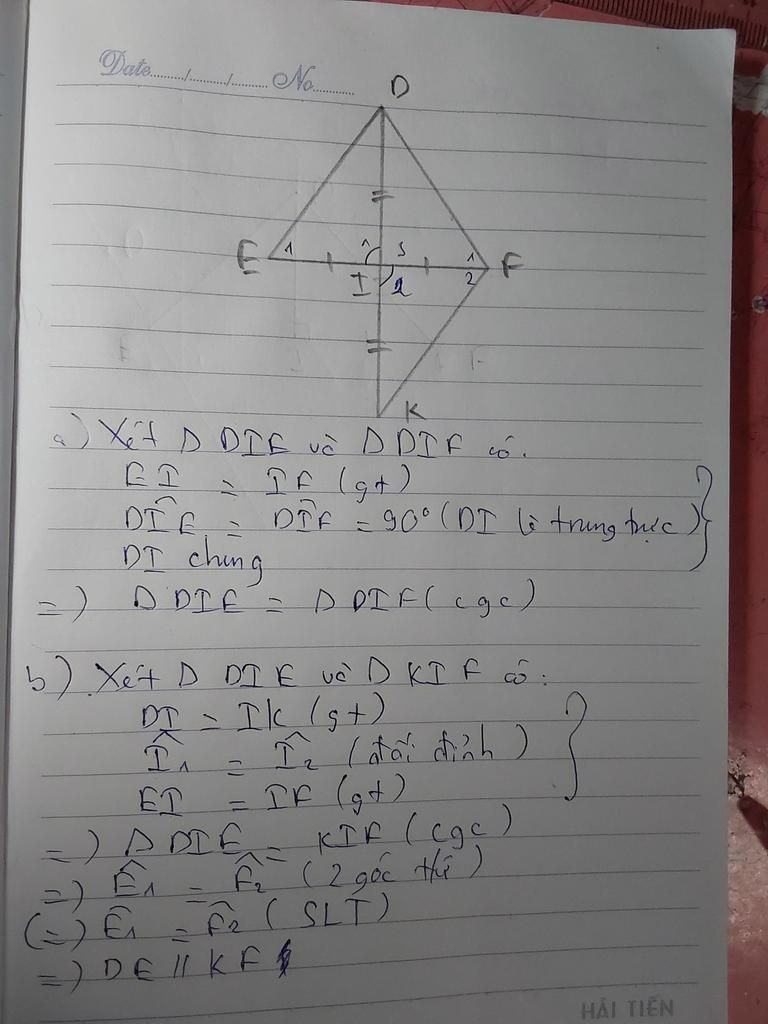 Date....../....../...... No..........
D
E 1 1 3 1 F
I 2 2
K
a) Xét Δ DIE và Δ DIF có.
EI = IF (gt)
DÎE = DÎF = 90° (DI là trung trực)
DI chung
=) Δ DIE = Δ DIF (cgc)
b) Xét Δ DIE và Δ KIF có:
DI = IK (gt)
Î1 = Î2 (đối đỉnh)
EI = IF (gt)
=) Δ DIE = KIF (cgc)
=) Ê1 = F̂2 (2 góc
(=) Ê1 = F̂2 (SLT)
=) DE // KF
HẢI TIẾN